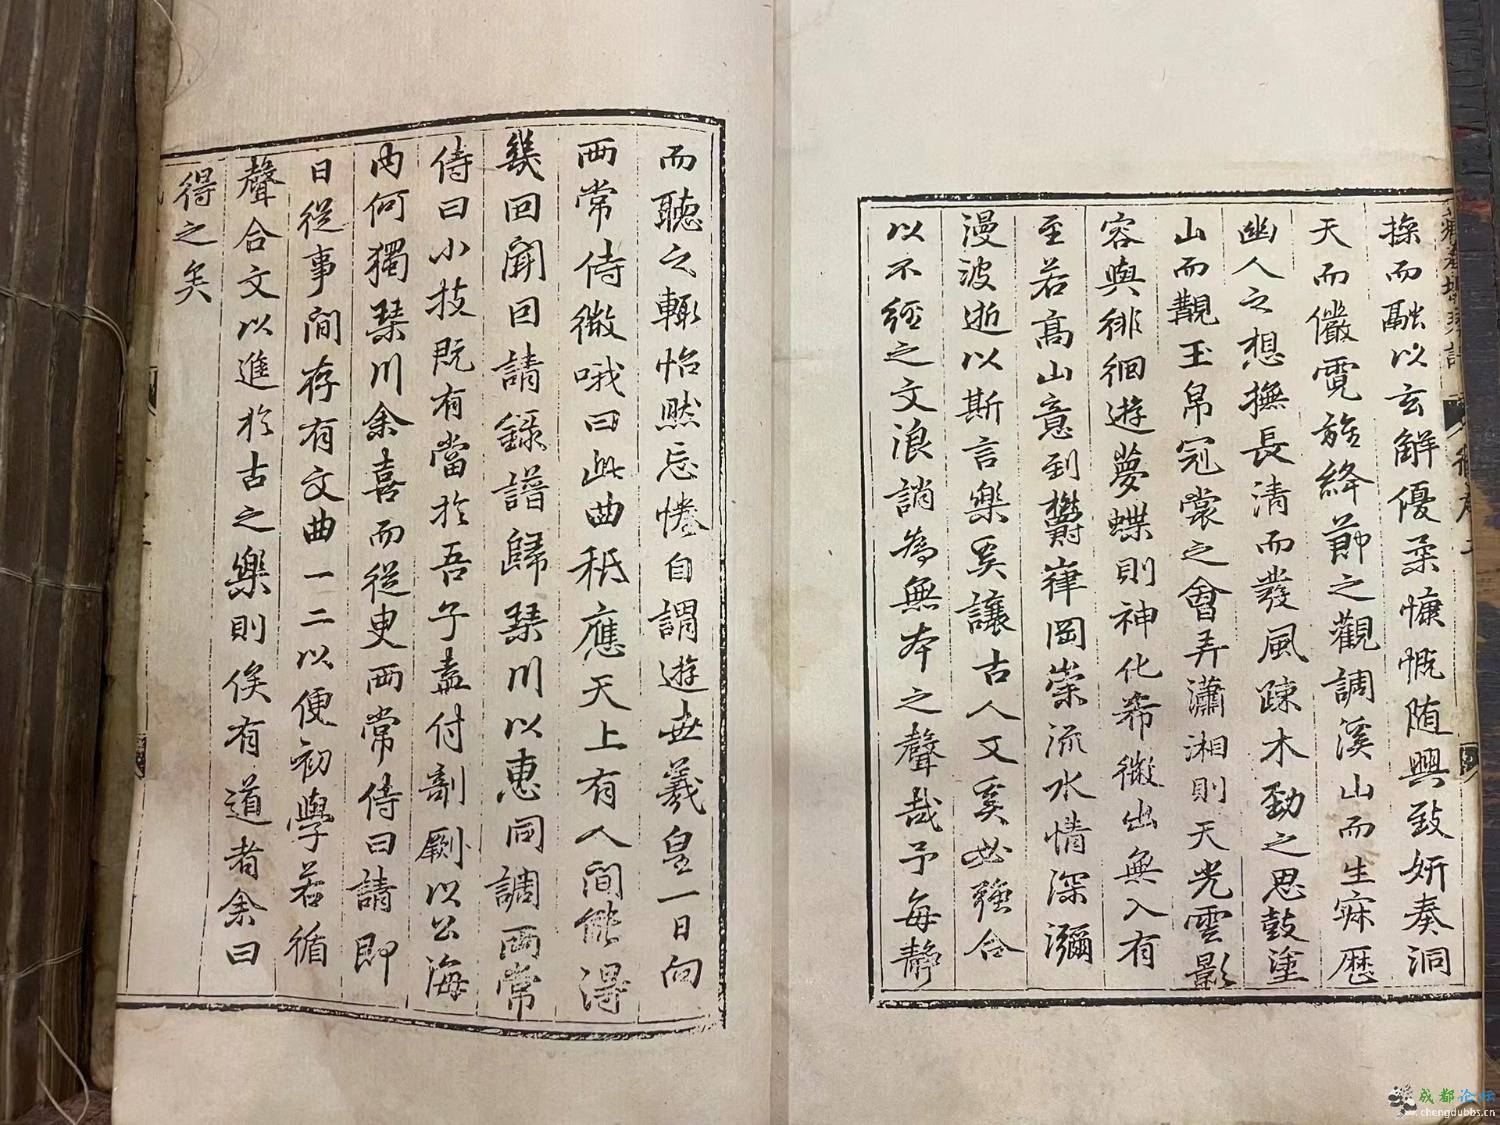 操而融以玄解優柔慷慨随興致妍奏洞
天而儼霓旌絳節之觀調溪山而生寐歷
幽人之想撫長清而發風疎木勁之思鼓塗
山而覩玉帛冠裳之會弄瀟湘則天光雲影
容與徘徊遊夢蝶則神化希微出無入有
至若高山意到欝嵂岡崇流水情深瀰
漫波逝以斯言樂奚讓古人又奚必強合
以不經之文浪誚為無本之聲哉予每靜
而聽之輙怡然忘惓自謂遊世羲皇一日向
兩常侍微哦曰此曲秪應天上有人間能得
幾回聞回請錄譜歸琹川以惠同調兩常
侍曰小技既有當於吾子盍付剞劂以公海
内何獨琹川余喜而從臾兩常侍曰請即
日從事間存有文曲一二以便初學若循
聲合文以進於古之樂則俟有道者余曰
得之矣
成都论坛
chengdubbs.cn